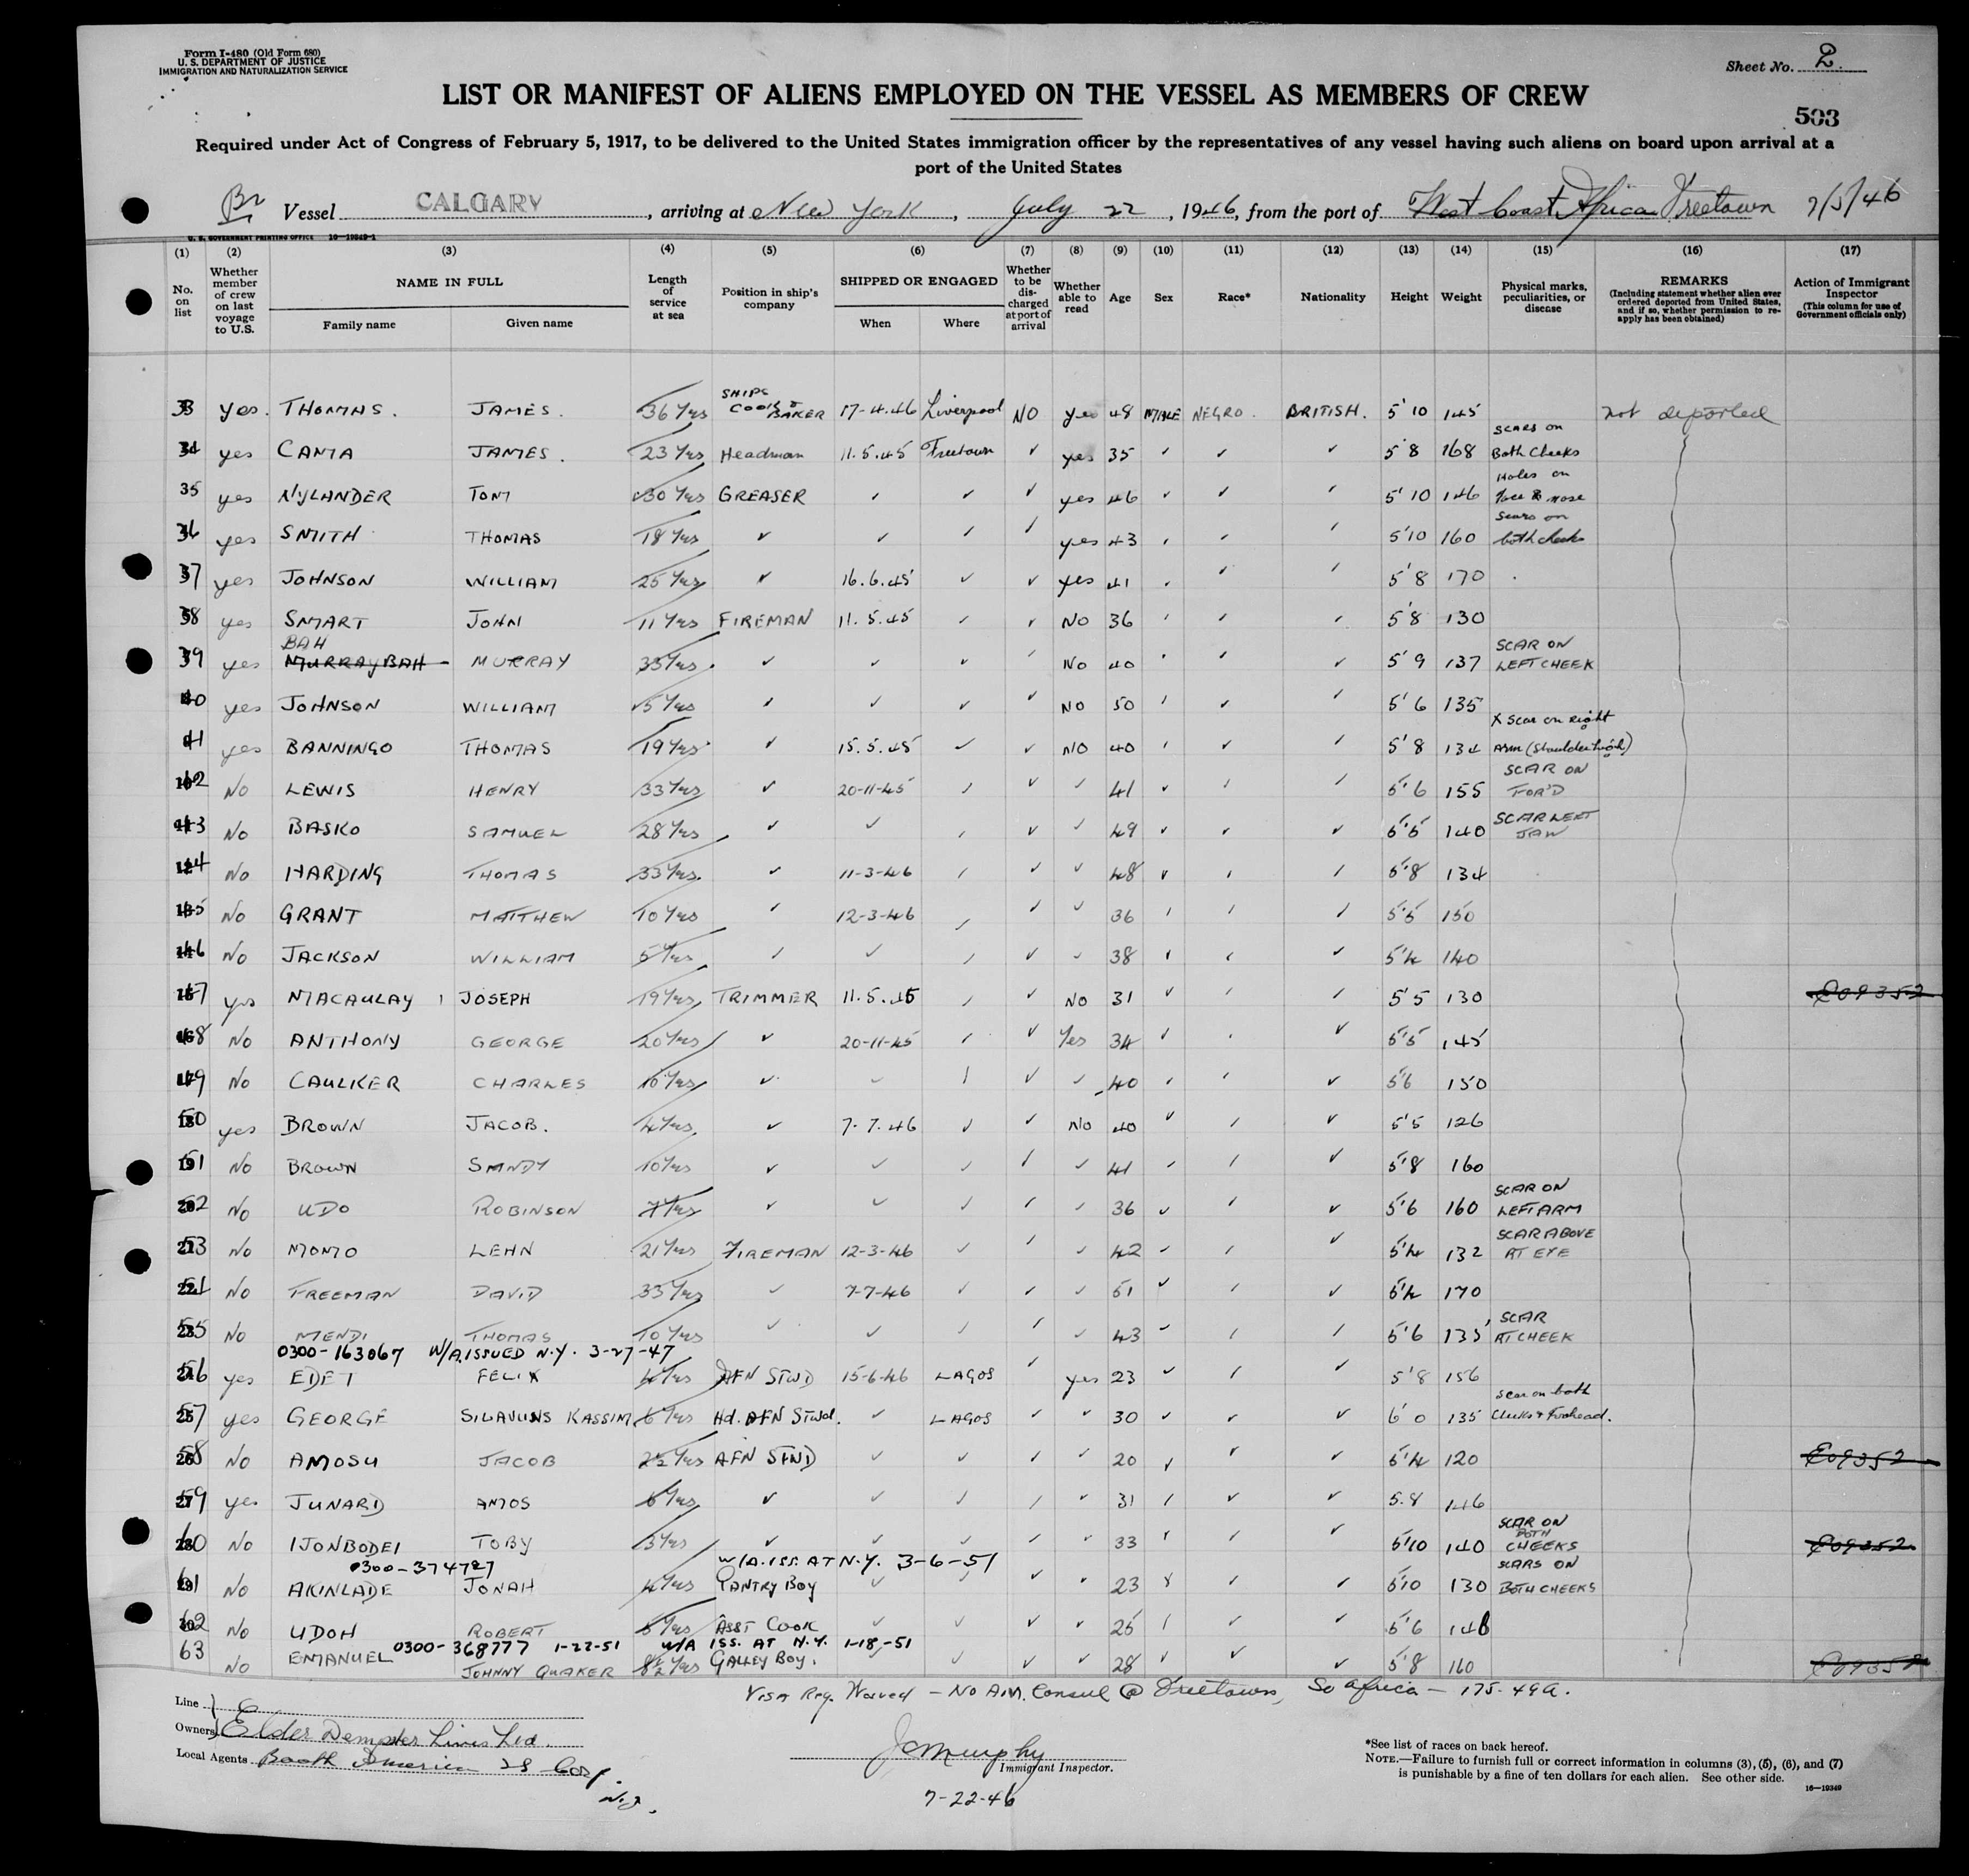 Form I-480 (Old Form 680)
U. S. DEPARTMENT OF JUSTICE
IMMIGRATION AND NATURALIZATION SERVICE
Sheet No. 2
LIST OR MANIFEST OF ALIENS EMPLOYED ON THE VESSEL AS MEMBERS OF CREW
503
Required under Act of Congress of February 5, 1917, to be delivered to the United States immigration officer by the representatives of any vessel having such aliens on board upon arrival at a
port of the United States
Br Vessel CALGARY, arriving at New York, July 22, 1946, from the port of West Coast Africa Freetown 7/5/46
U. S. GOVERNMENT PRINTING OFFICE 16—19349-1
(1) (2) (3) (4) (5) (6) (7) (8) (9) (10) (11) (12) (13) (14) (15) (16) (17)
No. on list
Whether member of crew on last voyage to U.S.
NAME IN FULL
Family name Given name
Length of service at sea
Position in ship's company
SHIPPED OR ENGAGED
When Where
Whether to be discharged at port of arrival
Whether able to read
Age Sex Race* Nationality Height Weight
Physical marks, peculiarities, or disease
REMARKS
(Including statement whether alien ever ordered deported from United States, and if so, whether permission to reapply has been obtained)
Action of Immigrant Inspector
(This column for use of Government officials only)
33 yes. THOMAS. JAMES. 36 Yrs SHIPS COOK & BAKER 17-4-46 Liverpool NO yes 48 MALE NEGRO. BRITISH. 5'10 145 not deported
34 yes CAMA JAMES. 23 Yrs Headman 11.5.45 Freetown ✓ yes 35 ✓ ✓ ✓ 5'8 168 scars on Both Cheeks
35 yes NYLANDER TOM 30 Yrs GREASER ✓ ✓ ✓ yes 46 ✓ ✓ ✓ 5'10 146 Holes on face & nose
36 yes SMITH THOMAS 18 Yrs ✓ ✓ ✓ ✓ yes 43 ✓ ✓ ✓ 5'10 160 Scars on both cheeks
37 yes JOHNSON WILLIAM 25 Yrs ✓ 16.6.45 ✓ ✓ yes 41 ✓ ✓ ✓ 5'8 170
38 yes SMART JOHN 11 Yrs FIREMAN 11.5.45 ✓ ✓ NO 36 ✓ ✓ ✓ 5'8 130
39 yes BAH MURRAY BAH MURRAY 33 Yrs ✓ ✓ ✓ ✓ No 40 ✓ ✓ ✓ 5'9 137 SCAR ON LEFT CHEEK
40 yes JOHNSON WILLIAM 5 Yrs ✓ ✓ ✓ ✓ NO 50 ✓ ✓ ✓ 5'6 135
41 yes BANNINGO THOMAS 19 Yrs ✓ 15.5.45 ✓ ✓ NO 40 ✓ ✓ ✓ 5'8 134 X Scar on Right Arm (Shoulder high)
42 No LEWIS HENRY 33 Yrs ✓ 20-11-45 ✓ ✓ ✓ 41 ✓ ✓ ✓ 5'6 155 SCAR ON FOR'D
43 No BASKO SAMUEL 28 Yrs ✓ ✓ ✓ ✓ ✓ 49 ✓ ✓ ✓ 5'5 140 SCAR LEFT JAW
44 No HARDING THOMAS 33 Yrs ✓ 11-3-46 ✓ ✓ ✓ 48 ✓ ✓ ✓ 5'8 134
45 No GRANT MATTHEW 10 Yrs ✓ 12-3-46 ✓ ✓ ✓ 36 ✓ ✓ ✓ 5'5 150
46 No JACKSON WILLIAM 5 Yrs ✓ ✓ ✓ ✓ ✓ 38 ✓ ✓ ✓ 5'4 140
47 yes MACAULAY JOSEPH 19 Yrs TRIMMER 11.5.45 ✓ ✓ NO 31 ✓ ✓ ✓ 5'5 130 E09352
48 No ANTHONY GEORGE 20 Yrs ✓ 20-11-45 ✓ ✓ Yes 34 ✓ ✓ ✓ 5'5 145
49 No CAULKER CHARLES 10 Yrs ✓ ✓ ✓ ✓ ✓ 40 ✓ ✓ ✓ 5'6 150
50 yes BROWN JACOB. 4 Yrs ✓ 7.7.46 ✓ ✓ NO 40 ✓ ✓ ✓ 5'5 126
51 No BROWN SANDY 10 Yrs ✓ ✓ ✓ ✓ ✓ 41 ✓ ✓ ✓ 5'8 160
52 No UDO ROBINSON 7 Yrs ✓ ✓ ✓ ✓ ✓ 36 ✓ ✓ ✓ 5'6 160 SCAR ON LEFT ARM
53 No MOMO LEHN 21 Yrs FIREMAN 12-3-46 ✓ ✓ ✓ 42 ✓ ✓ ✓ 5'4 132 SCAR ABOVE RT EYE
54 No FREEMAN DAVID 33 Yrs ✓ 7-7-46 ✓ ✓ ✓ 51 ✓ ✓ ✓ 5'4 170
55 No MENDI THOMAS 10 Yrs ✓ ✓ ✓ ✓ ✓ 43 ✓ ✓ ✓ 5'6 135 SCAR RT CHEEK
0300-163067 W/A ISSUED N.Y. 3-27-47
56 yes EDET FELIX 4 Yrs AFN STWD 15-6-46 LAGOS ✓ yes 23 ✓ ✓ ✓ 5'8 156
57 yes GEORGE SILAVUNS KASSIM 6 Yrs Hd. AFN Stwd. ✓ LAGOS ✓ ✓ 30 ✓ ✓ ✓ 6'0 135 Scar on both Cheeks & Forehead.
58 No AMOSU JACOB 2½ Yrs AFN STWD ✓ ✓ ✓ ✓ 20 ✓ ✓ ✓ 5'4 120 E09352
59 yes JUNARD AMOS 6 Yrs ✓ ✓ ✓ ✓ ✓ 31 ✓ ✓ ✓ 5.8 146
60 No IJONBODEI TOBY 3 Yrs ✓ ✓ ✓ ✓ ✓ 33 ✓ ✓ ✓ 5'10 140 SCAR ON BOTH CHEEKS E09352
0300-374727 W/A. ISS. AT N.Y. 3-6-51
61 No AKINLADE JONAH 4 Yrs PANTRY BOY ✓ ✓ ✓ ✓ 23 ✓ ✓ ✓ 5'10 130 SCARS ON BOTH CHEEKS
62 No UDOH ROBERT 5 Yrs ASST COOK ✓ ✓ ✓ ✓ 25 ✓ ✓ ✓ 5'6 148
0300-368777 1-22-51 W/A ISS. AT N.Y. 1-18-51
63 No EMANUEL JOHNNY QUAKER 8½ Yrs GALLEY BOY. ✓ ✓ ✓ ✓ 28 ✓ ✓ ✓ 5'8 160 E09352
Visa Req. Waived — No Am. Consul @ Freetown, So Africa — 175.49a.
Line
Owners Elder Dempster Lines Ltd.
Local Agents Booth American SS Corp. N.Y.
JC Murphy
Immigrant Inspector.
7-22-46
*See list of races on back hereof.
NOTE.—Failure to furnish full or correct information in columns (3), (5), (6), and (7)
is punishable by a fine of ten dollars for each alien. See other side.
16—19349